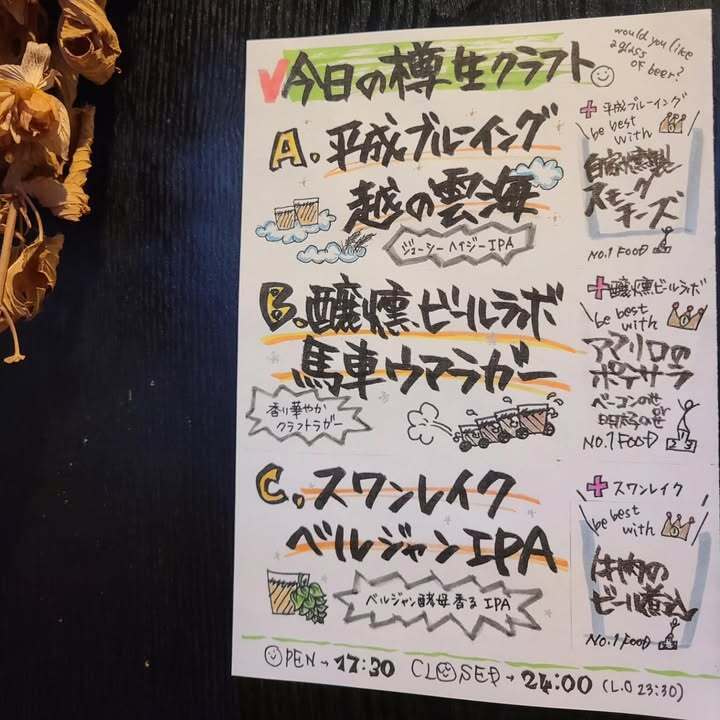 今日の樽生クラフト
would you like
a glass
of beer?
A. 平成ブルーイング
越の雲海
ジューシーヘイジーIPA
+平成ブルーイング
be best
with
自家燻製
スモーク
チーズ
NO.1 FOOD
B. 醸燻ビールラボ
馬車ウマラガー
香り華やか
クラフトラガー
+醸燻ビールラボ
be best
with
アマリロの
ポテサラ
ベーコンのせ
or
明太のせ
NO.1 FOOD
C. スワンレイク
ベルジャンIPA
ベルジャン酵母香るIPA
+スワンレイク
be best
with
ビール煮込
No.1 FOOD
OPEN→17:30 CLOSED→24:00 (L.O 23:30)